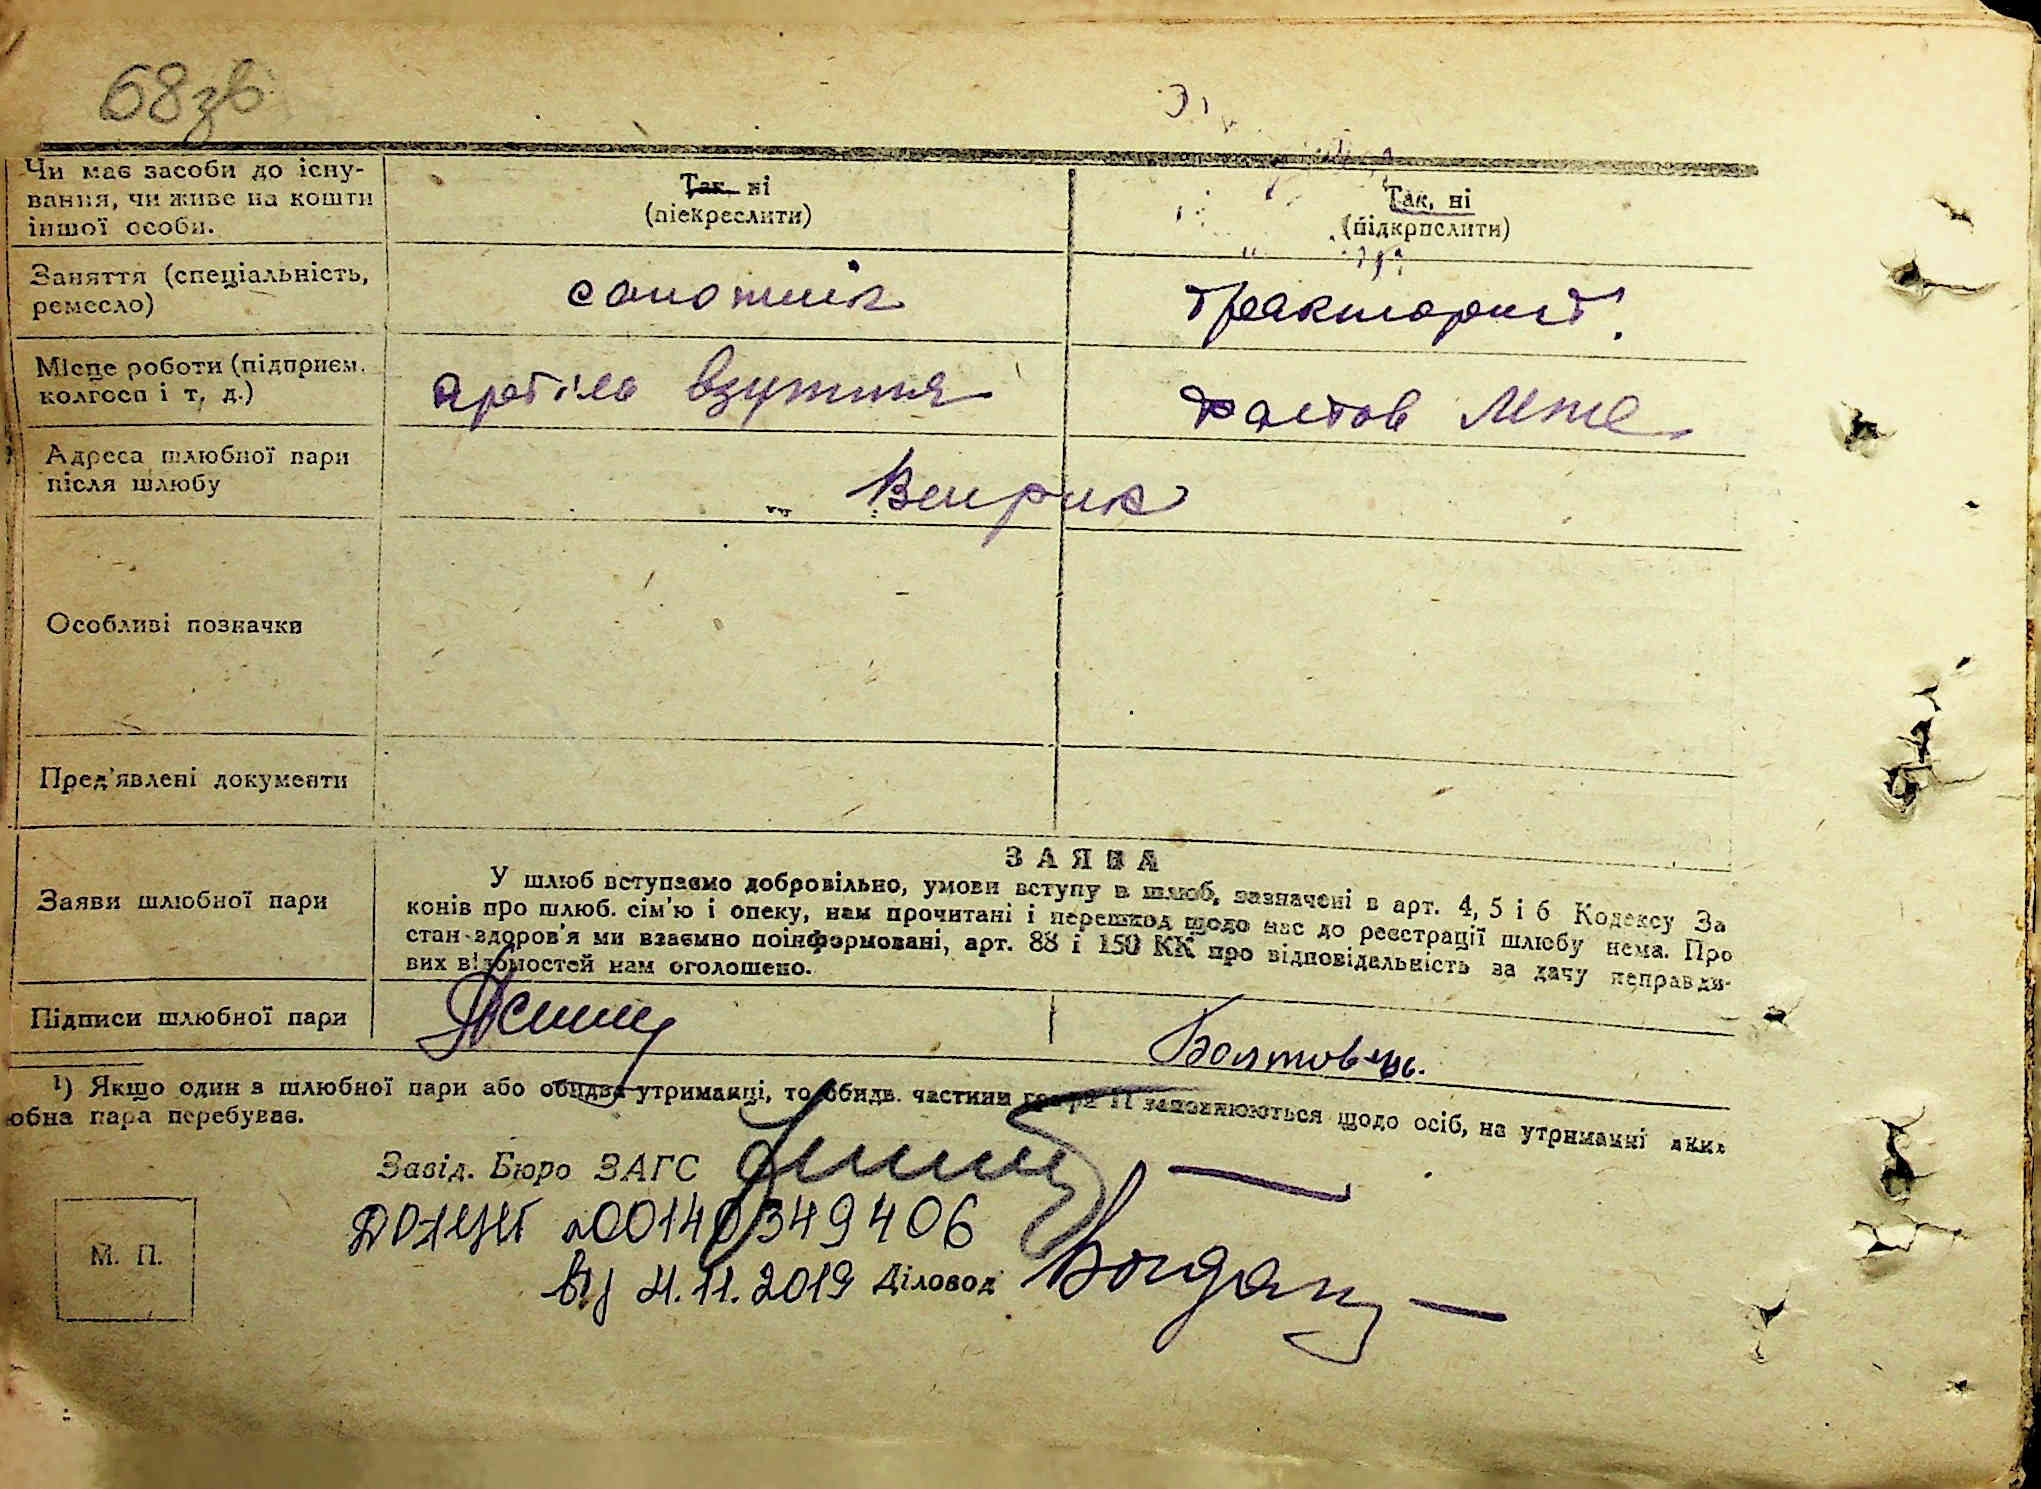 68зв
Чи має засоби до існу-
вання, чи живе на кошти
іншої особи.
Так, ні
(піекреслити)
Так, ні
(підкрпслити)
Заняття (спеціальність,
ремесло)
сапожнік
тракторист
Місце роботи (підприєм.
колгосп і т, д.)
артіль взуття
Фастов МТС
Адреса шлюбної пари
після шлюбу
Веприк
Особливі позначки
Пред'явлені документи
Заяви шлюбної пари
ЗАЯВА
У шлюб вступаємо добровільно, умови вступу в шлюб, зазначені в арт. 4, 5 і 6 Кодексу За
конів про шлюб. сім'ю і опеку, нам прочитані і перешкод щодо нас до реєстрації шлюбу нема. Про
стан здоров'я ми взаємно поінформовані, арт. 88 і 150 КК про відповідальність за дачу неправди-
вих відомостей нам оголошено.
Підписи шлюбної пари
¹) Якщо один в шлюбної пари або обидва утриманці, то обидв. частини графи 11 заповнюються щодо осіб, на утриманні яких
юбна пара перебуває.
Завід. Бюро ЗАГС
00140349406
М. П.
від 4.11.2019 Діловод